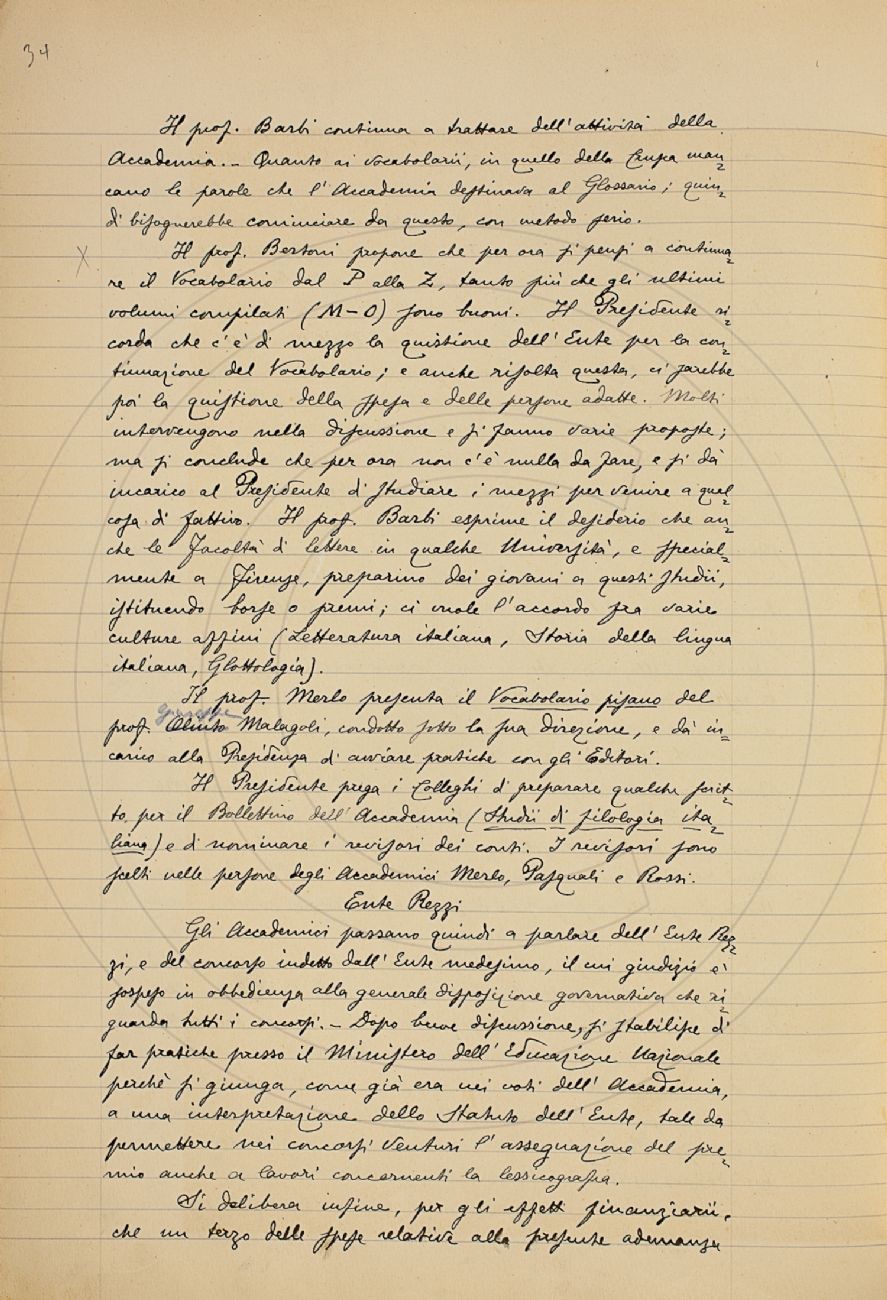 34
Il prof. Barbi continua a trattare dell'attività della
Accademia. – Quanto ai vocabolarii, in quello della Crusca man=
cano le parole che l'Accademia destinava al Glossario; quin=
di bisognerebbe cominciare da questo, con metodo serio.
X Il prof. Bertoni propone che per ora si pensi a continua=
re il Vocabolario dal P alla Z, tanto più che gli ultimi
volumi compilati (M–O) sono buoni. Il Presidente ri=
corda che c'è di mezzo la quistione dell'Ente per la con=
tinuazione del Vocabolario; e anche risolta questa, ci sarebbe
poi la quistione della spesa e delle persone adatte. Molti
intervengono nella discussione e si fanno varie proposte;
ma si conclude che per ora non c'è nulla da fare, e si dà
incarico al Presidente di studiare i mezzi per venire a qual=
cosa di fattivo. Il prof. Barbi esprime il desiderio che an=
che le Facoltà di lettere in qualche Università, e special=
mente a Firenze, preparino dei giovani a questi studii,
istituendo borse o premi; ci vuole l'accordo fra varie
culture affini (Letteratura italiana, Storia della lingua
italiana, Glottologia).
Il prof. Merlo presenta il Vocabolario pisano del
Giuseppe
prof. Olinto Malagoli, condotto sotto la sua direzione, e dà in=
carico alla Presidenza di avviare pratiche con gli Editori.
Il Presidente prega i Colleghi di preparare qualche scrit=
to, per il Bollettino dell'Accademia (Studii di filologia ita=
liana) e di nominare i revisori dei conti. I revisori sono
scelti nelle persone degli Accademici Merlo, Pasquali e Rossi.
Ente Rezzi
Gli Accademici passano quindi a parlare dell'Ente Rez=
zi, e del concorso indetto dall'Ente medesimo, il cui giudizio è
sospeso in obbedienza alla generale disposizione governativa che ri=
guarda tutti i concorsi. – Dopo breve discussione, si stabilisce di
far pratiche presso il Ministero dell'Educazione Nazionale
perchè si giunga, come già era nei voti dell'Accademia,
a una interpretazione dello Statuto dell'Ente, tale da
permettere nei concorsi venturi l'assegnazione del pre=
mio anche a lavori concernenti la lessicografia.
Si delibera infine, per gli effetti finanziarii,
che un terzo delle spese relative alla presente adunanza